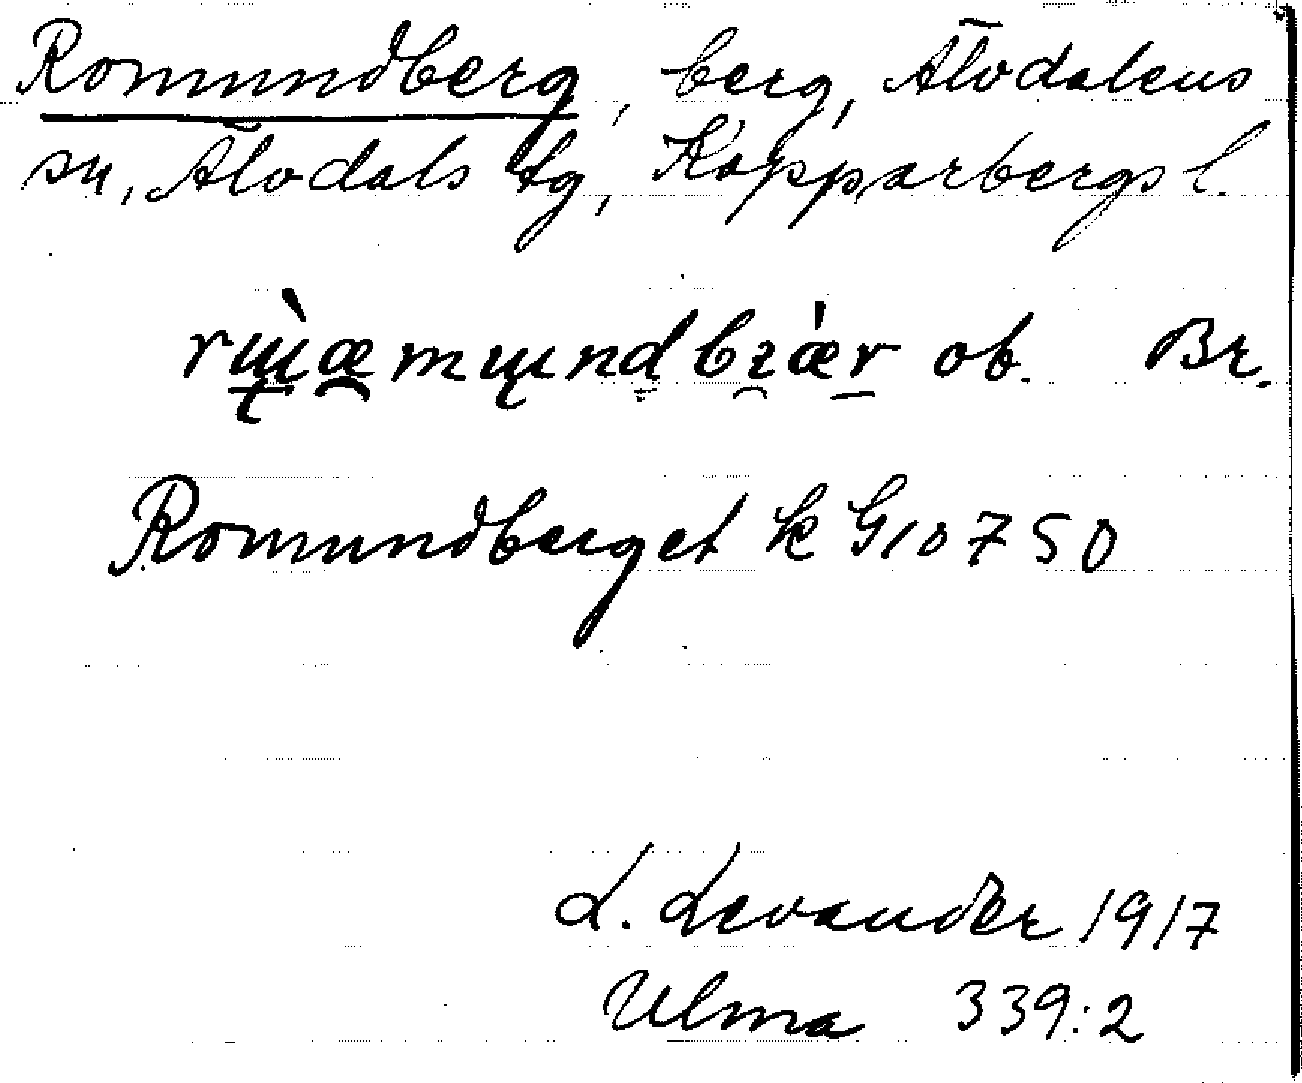 Romundberg, berg, Älvdalens
sn, Älvdals tg, Kopparbergs l.
ob. Br.
Romundberget k G10750
L. Levander 1917
Ulma 339:2